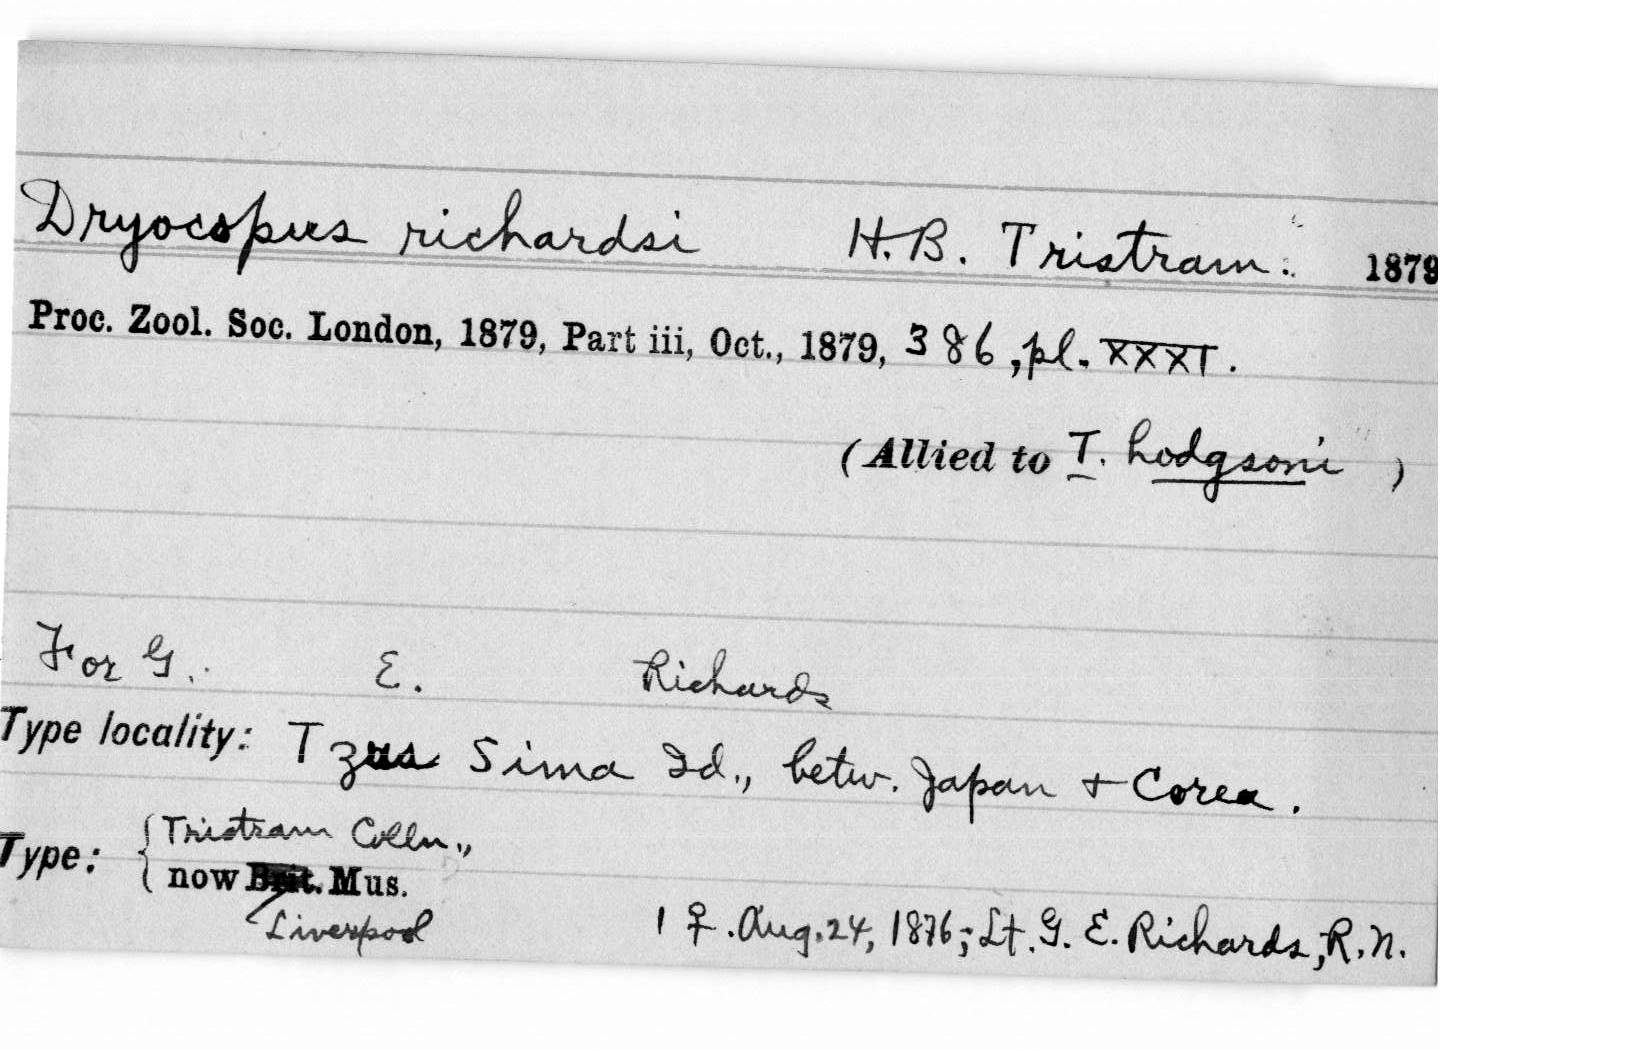 Dryocopus richardsi H.B. Tristram. 1879
Proc. Zool. Soc. London, 1879, Part iii, Oct., 1879, 386, pl. XXXI.
(Allied to T. hodgsoni )
For G. E. Richards
Type locality: Tzus Sima Id., betw. Japan + Corea.
Type: { Tristram Colln.,
now Brit. Mus.
Liverpool
1 ♀. Aug. 24, 1876; Lt. G. E. Richards, R.N.